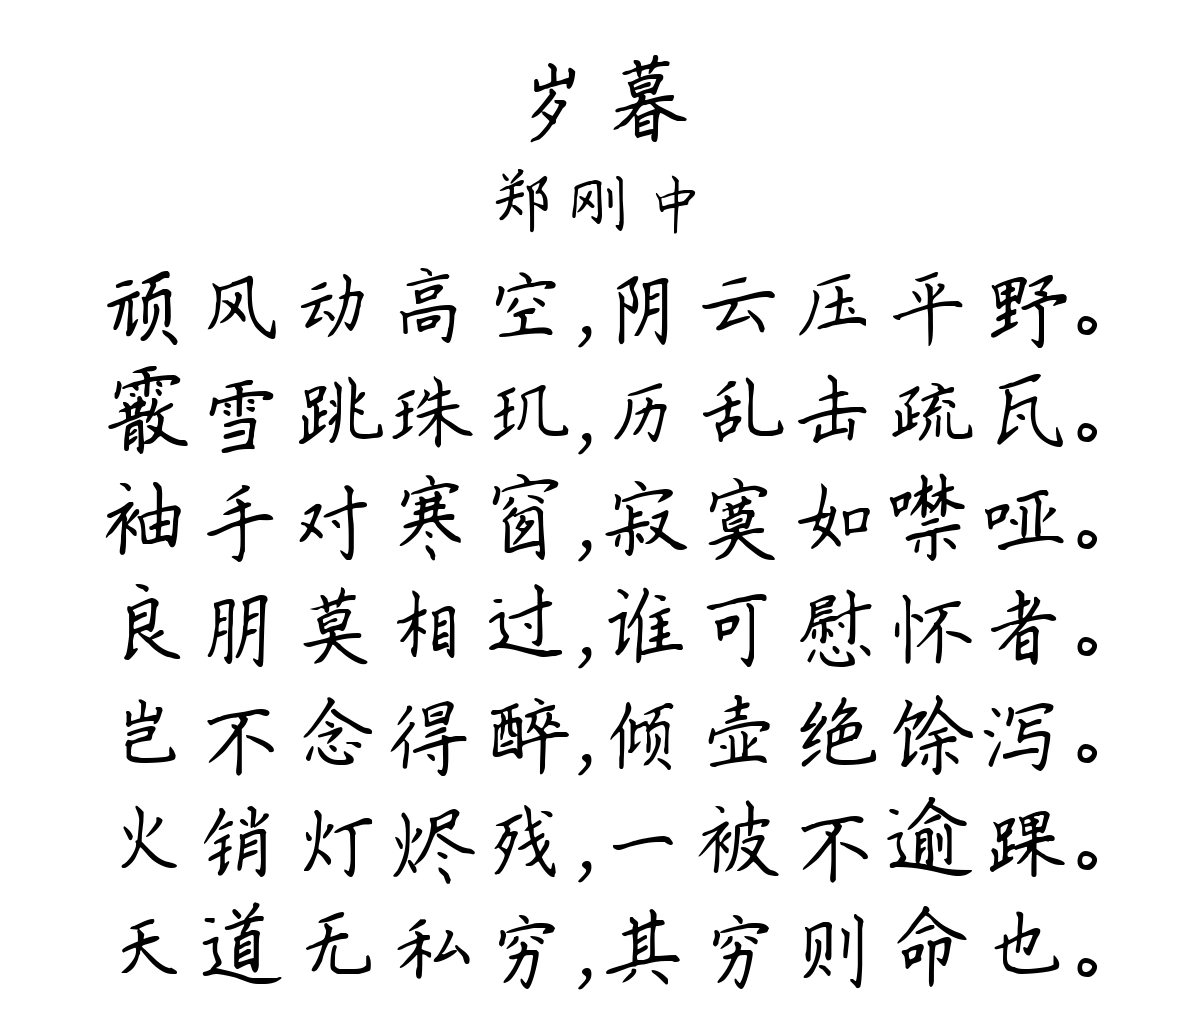 岁暮
郑刚中
顽风动高空,阴云压平野。
霰雪跳珠玑,历乱击疏瓦。
袖手对寒窗,寂寞如噤哑。
良朋莫相过,谁可慰怀者。
岂不念得醉,倾壶绝馀泻。
火销灯烬残,一被不逾踝。
天道无私穷,其穷则命也。